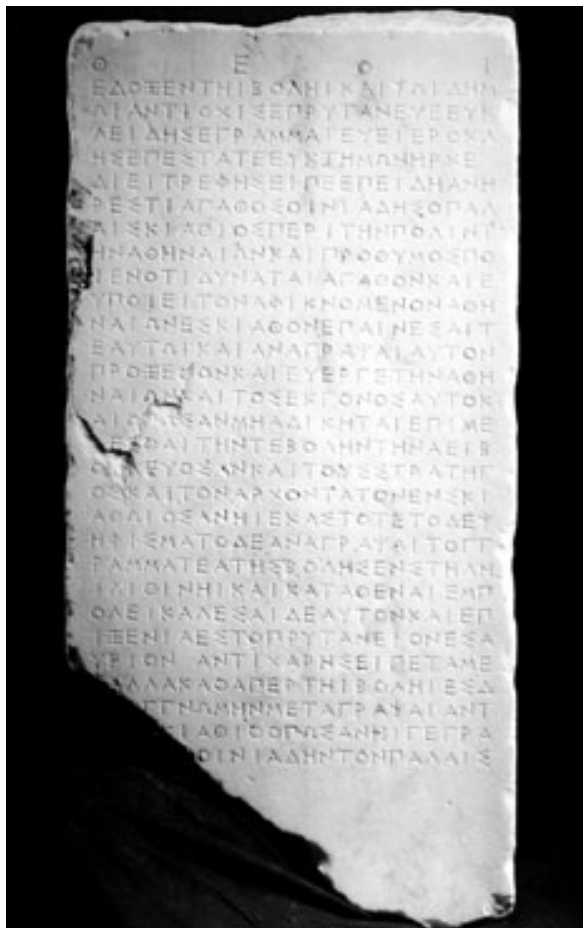 Θ Ε Ο Ι
ΕΔΟΞΕΝΤΗΙΒΟΛΗΙΚΑΙΤΩΙΔΗΜ
ΩΙΑΝΤΙΟΧΙΣΕΠΡΥΤΑΝΕΥΕΕΥΚ
ΛΕΙΔΗΣΕΓΡΑΜΜΑΤΕΥΕΙΕΡΟΚΛ
ΗΣΕΠΕΣΤΑΤΕΕΥΚΤΗΜΩΝΗΡΧΕ
ΔΙΕΙΤΡΕΦΗΣΕΙΠΕΕΠΕΙΔΗΑΝΗ
ΡΕΣΤΙΑΓΑΘΟΣΟΙΝΙΑΔΗΣΟΠΑΛ
ΑΙΣΚΙΑΘΙΟΣΠΕΡΙΤΗΝΠΟΛΙΝΤ
ΗΝΑΘΗΝΑΙΩΝΚΑΙΠΡΟΘΥΜΟΣΠΟ
ΙΕΝΟΤΙΔΥΝΑΤΑΙΑΓΑΘΟΝΚΑΙΕ
ΥΠΟΙΕΙΤΟΝΑΦΙΚΝΟΜΕΝΟΝΑΘΗ
ΝΑΙΩΝΕΣΚΙΑΘΟΝΕΠΑΙΝΕΣΑΙΤ
ΕΑΥΤΩΙΚΑΙΑΝΑΓΡΑΨΑΙΑΥΤΟΝ
ΠΡΟΞΕΝΟΝΚΑΙΕΥΕΡΓΕΤΗΝΑΘΗ
ΝΑΙΩΝΚΑΙΤΟΣΕΚΓΟΝΟΣΑΥΤΟΚ
ΑΙΟΠΩΣΑΝΜΗΑΔΙΚΗΤΑΙΕΠΙΜΕ
ΛΕΣΘΑΙΤΗΝΤΕΒΟΛΗΝΤΗΝΑΕΙΒ
ΟΛΕΥΟΣΑΝΚΑΙΤΟΥΣΣΤΡΑΤΗΓ
ΟΣΚΑΙΤΟΝΑΡΧΟΝΤΑΤΟΝΕΝΣΚΙ
ΑΘΩΙΟΣΑΝΗΙΕΚΑΣΤΟΤΕΤΟΔΕΨ
ΗΦΙΣΜΑΤΟΔΕΑΝΑΓΡΑΨΑΙΤΟΓΓ
ΡΑΜΜΑΤΕΑΤΗΣΒΟΛΗΣΕΝΣΤΗΛΗ
ΙΛΙΘΙΝΗΙΚΑΙΚΑΤΑΘΕΝΑΙΕΜΠ
ΟΛΕΙΚΑΛΕΣΑΙΔΕΑΥΤΟΝΚΑΙΕΠ
ΙΞΕΝΙΑΕΣΤΟΠΡΥΤΑΝΕΙΟΝΕΣΑ
ΥΡΙΟΝ ΑΝΤΙΧΑΡΗΣΕΙΠΕΤΑΜΕ
ΑΛΛΑΚΑΘΑΠΕΡΤΗΙΒΟΛΗΙΕΣΔ
ΓΓΝΩΜΗΝΜΕΤΑΓΡΑΨΑΙΑΝΤ
ΙΑΘΙΟΟΠΩΣΑΝΗΙΓΕΓΡΑ
ΟΙΝΙΑΔΗΝΤΟΝΠΑΛΑΙΣ